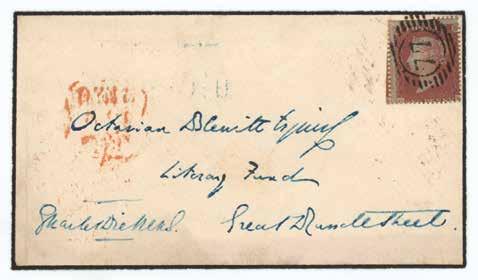 77
Octavian Blewitt Esquire
Literary Fund
Charles Dickens. Great Russell Street.